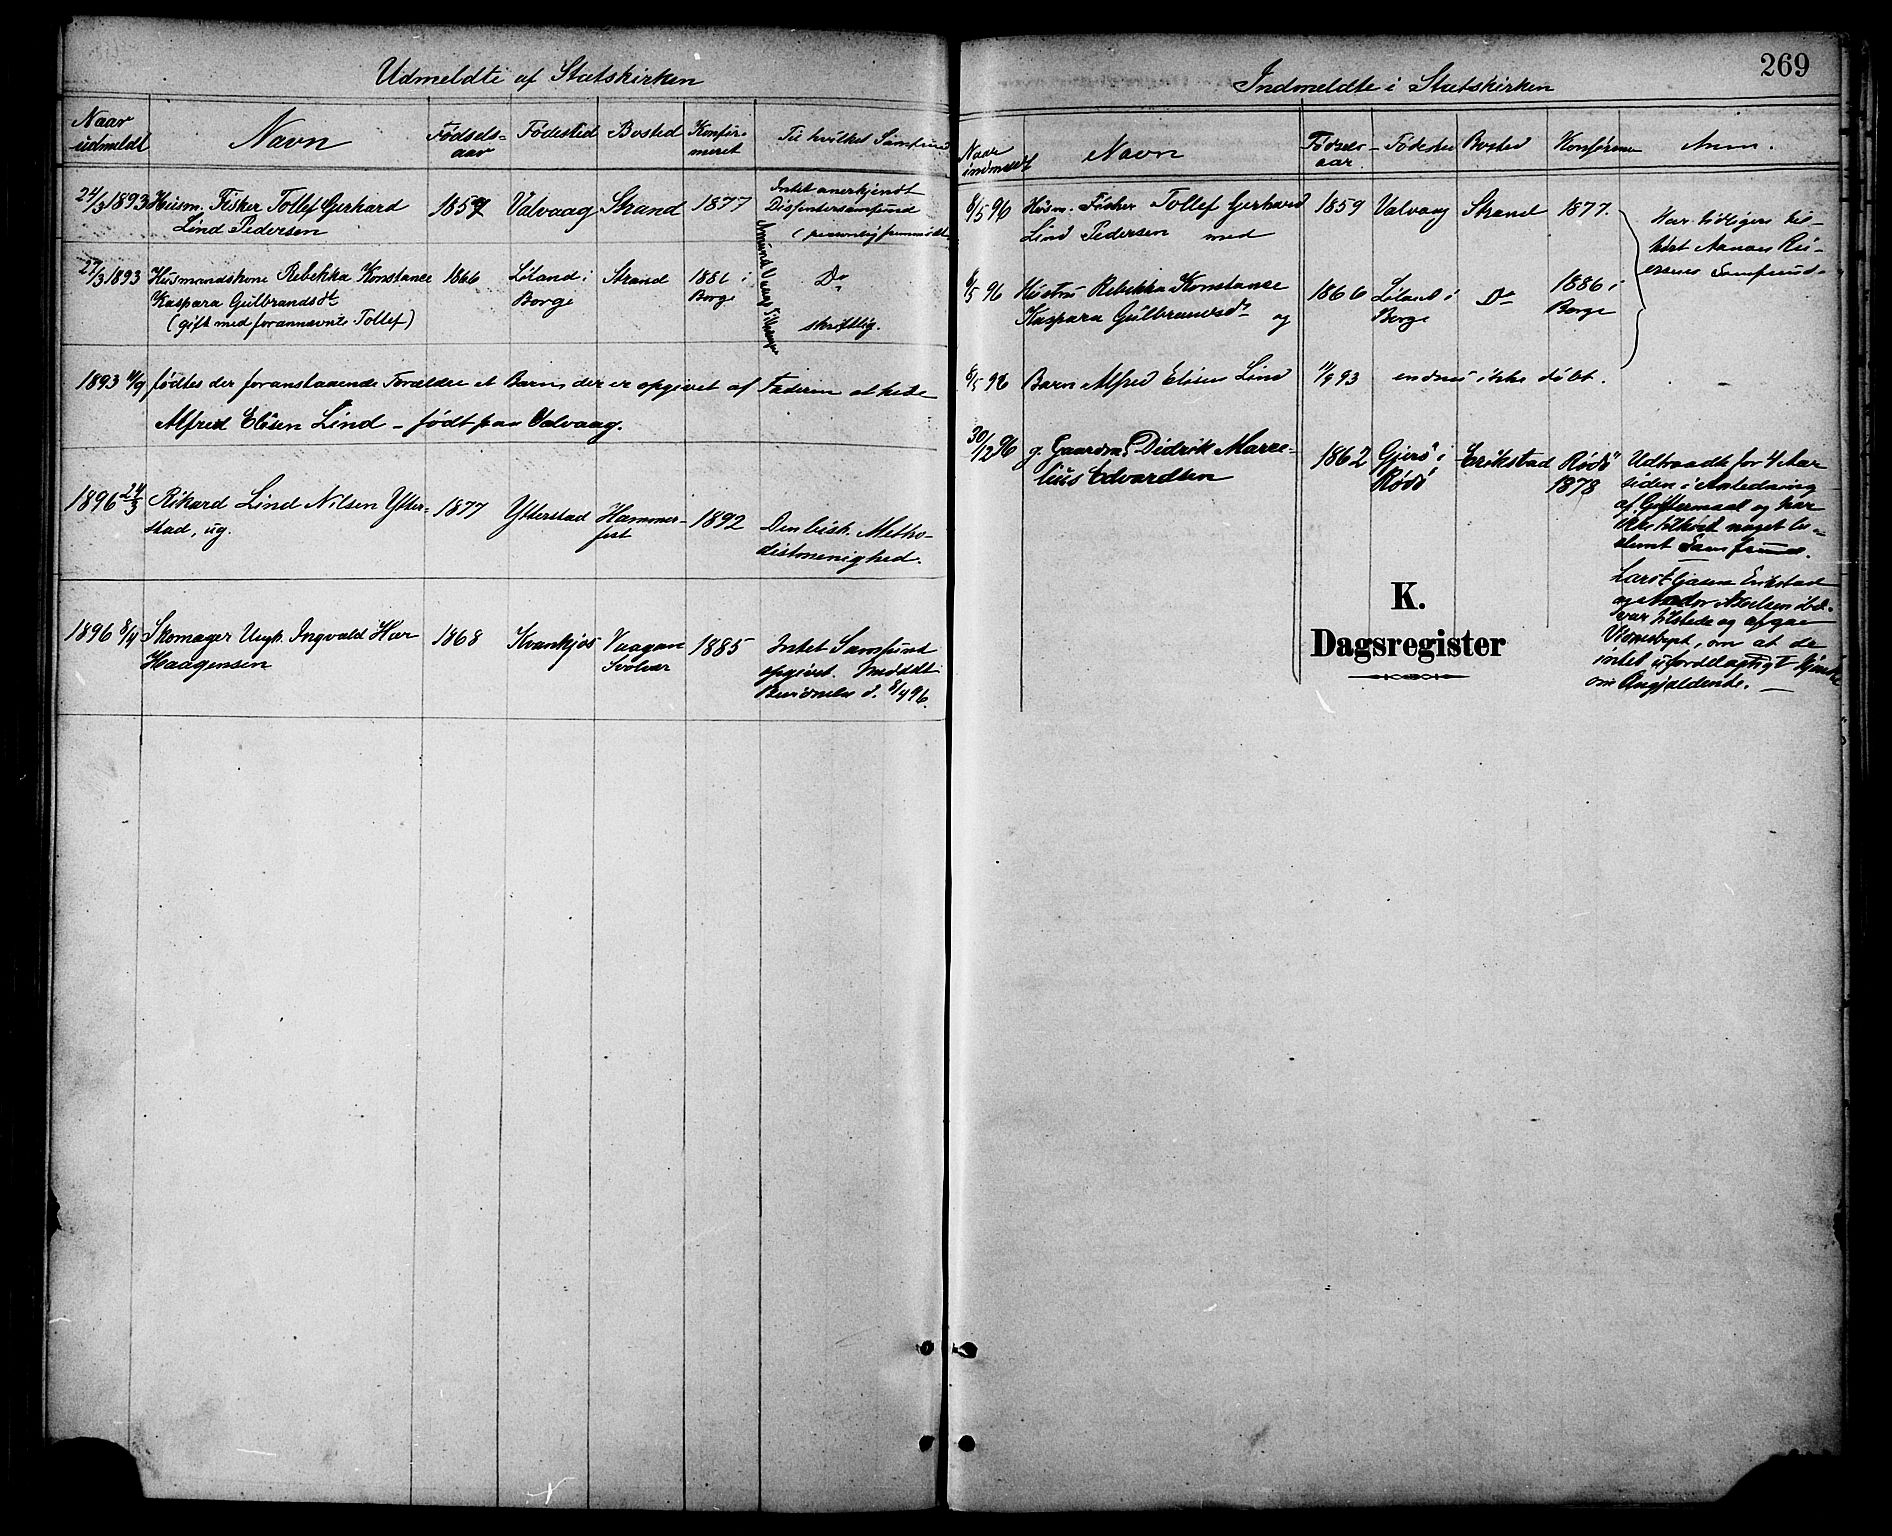 Udmeldte af Statskirken
Naar udmeldt Navn Fødselsaar Fødested Bosted Konfirmeret Til hvilket Samfund
24/3 1893 Husm. Fisker Tollef Gerhard 1857 Valvaag Strand 1877 Intet anerkjendt
Lind Pedersen Dissentersamfund
(personlig fremmødt)
27/3 1893 Husmandskone Rebekka Konstance 1866 Löland i Strand 1881 i Do
Kaspara Gulbrandsdt Borge Borge
(gift med forannævnte Tollef) skriftlig.
1893 11/9 fødtes der foranstaaende Forældre et Barn, der er opgivet af Faderen at hede
Alfred Elisen Lind – født paa Valvaag.
1896 24/3 Rikard Lind Nilsen Ytter- 1877 Ytterstad Hammer- 1892 Den bisk. Metho-
stad, ug. fest distmenighed.
1896 8/4 Skomager Ungk. Ingvald Hær 1868 Kvankjos Vaagan 1885 Intet Samfund
Haagensen Svolvær opgivet.
8/4 96.
269
Indmeldte i Statskirken
Naar indmeldt Navn Fødselsaar. Fødested Bosted Konfirmeret Anm.
8/5 96 Husm. Fisker Tollef Gerhard 1859 Valvaag Strand 1877. Har tidligere til-
Lind Pedersen med hørt
Samfund.
8/5 96 Hustru Rebekka Konstanse 1866 Löland i Do 1886 i
Kaspara Gulbrandsdt og Borge Borge
8/5 96 Barn Alfred Elisen Lind 11/9 93 endnu ikke döbt.
30/12 96 g. Gaardm. Didrik Marce- 1862 Gjersö i Erikstad Rödö Udtraadt for 4 Aar
lius Edvardsen Rödö 1878 siden i Anledning
af Giftermaal og har
ikke tilhørt noget be-
stemt Samfund.
Erikstad
var tilstede og afgav
Vidnesbyrd, om at de
intet ufordelagtigt kjendte
om Angjældende. –
K.
Dagsregister